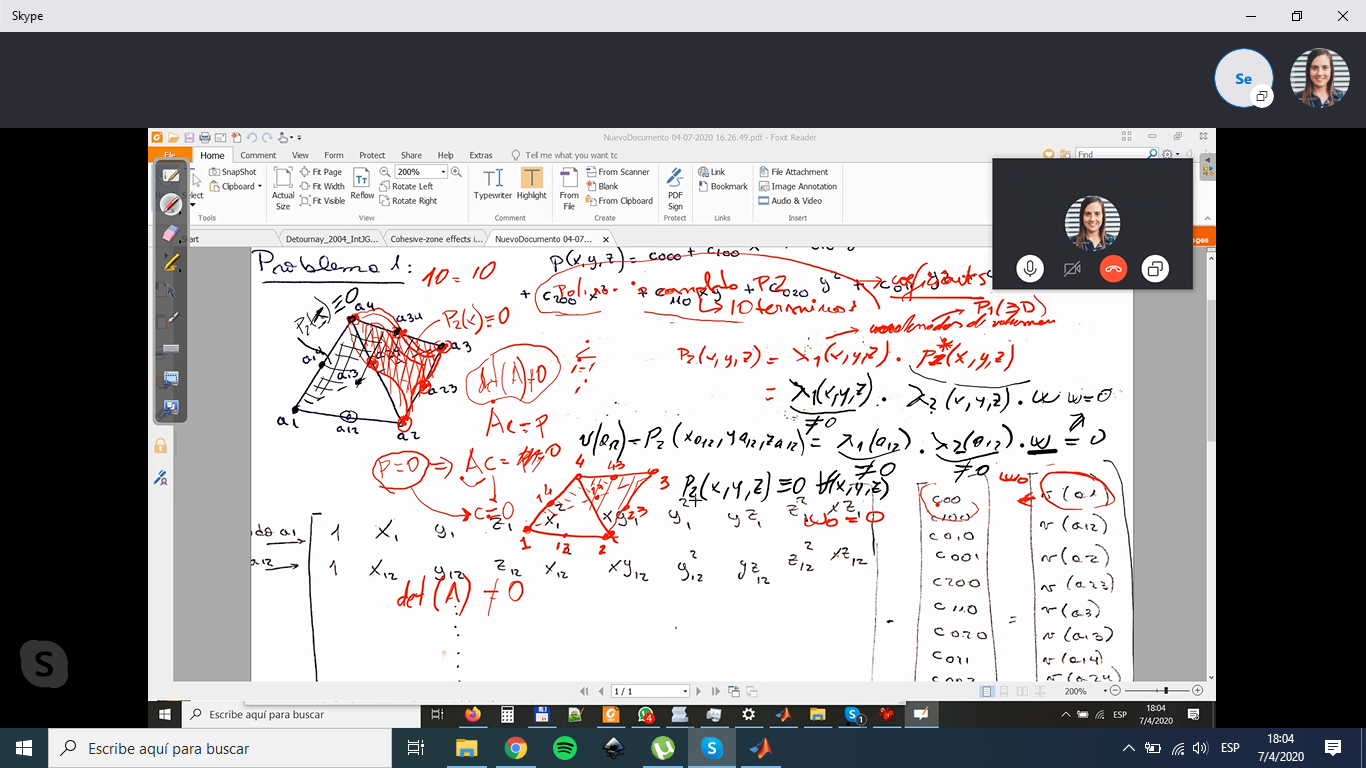 Skype
Se
NuevoDocumento 04-07-2020 16.26.49.pdf - Foxit Reader
File Home Comment View Form Protect Share Help Extras Tell me what you want tc Find
SnapShot
Clipboard
Select
Tools
Actual Size
Fit Page
Fit Width
Fit Visible
Reflow
200%
Rotate Left
Rotate Right
View
Typewriter
Highlight
Comment
From File
From Scanner
Blank
From Clipboard
Create
PDF Sign
Protect
Link
Bookmark
Links
File Attachment
Image Annotation
Audio & Video
Insert
Start
Detournay_2004_IntJG...
Cohesive-zone effects i...
NuevoDocumento 04-07...
Problema 1:
10 = 10
P(x,y,z) = c000 + c100 x
+ c200 x² + c110 xy + c020 y² + c011 yz
completo P2
coeficientes
10 terminos
P1(≥D)
coordenadas de volumen
P2(x) ≡ 0
a4
a34
P2(x) ≡ 0
a3
a13
a23
a1
a12
a2
det(A) ≠ 0
P2(x,y,z) = λ1(x,y,z) · P2*(x,y,z)
= λ1(x,y,z) · λ2(x,y,z) · w w=0
≠0
Ac = P
v(a12) = P2(xa12, ya12, za12) = λ1(a12) · λ2(a12) · w = 0
≠0 ≠0
P=0 ⇒ Ac = 0
c=0
4
43
3
14
23
1
12
2
P2(x,y,z) ≡ 0 ∀(x,y,z)
w0 = 0
w0
a1 →
1 x1 y1 z1 x1² xy1 y1² yz1 z1² xz1
a12 →
1 x12 y12 z12 x12² xy12 y12² yz12 z12² xz12
det(A) ≠ 0
c000
c100
c010
c001
c200
c110
c020
c011
=
v(a1)
v(a12)
v(a2)
v(a23)
v(a3)
v(a13)
v(a14)
v(a24)
1 / 1
200%
Escribe aquí para buscar
4
1
ESP
18:04
7/4/2020
Escribe aquí para buscar
ESP
18:04
7/4/2020